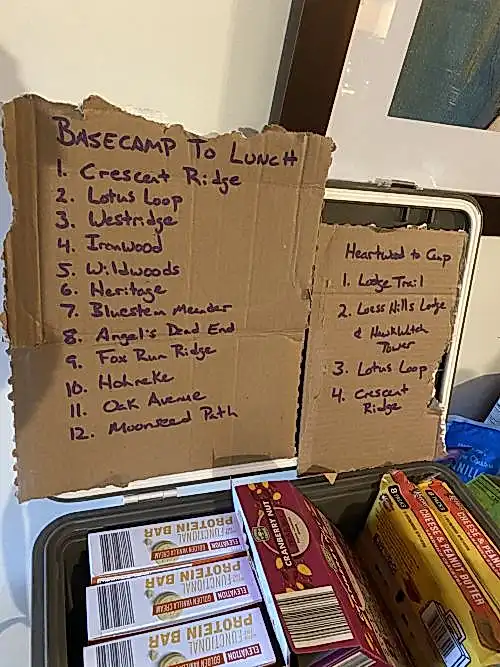 BASECAMP TO LUNCH
1. Crescent Ridge
2. Lotus Loop
3. Westridge
4. Ironwood
5. Wildwoods
6. Heritage
7. Bluestem Meander
8. Angel's Dead End
9. Fox Run Ridge
10. Hohneke
11. Oak Avenue
12. Moonseed Path
Heartwood to Camp
1. Lodge Trail
2. Loess Hills Lodge
& Hawkwatch
Tower
3. Lotus Loop
4. Crescent
Ridge
ELEVATION
GOLDEN VANILLA CREAM
FUNCTIONAL
PROTEIN BAR
ELEVATION
GOLDEN VANILLA CREAM
FUNCTIONAL
PROTEIN BAR
ELEVATION
GOLDEN VANILLA CREAM
FUNCTIONAL
PROTEIN BAR
CRANBERRY NUT
8 PACKS
CHEESE & PEANUT BUTTER
8 PACKS
CHEESE & PEANUT BUTTER